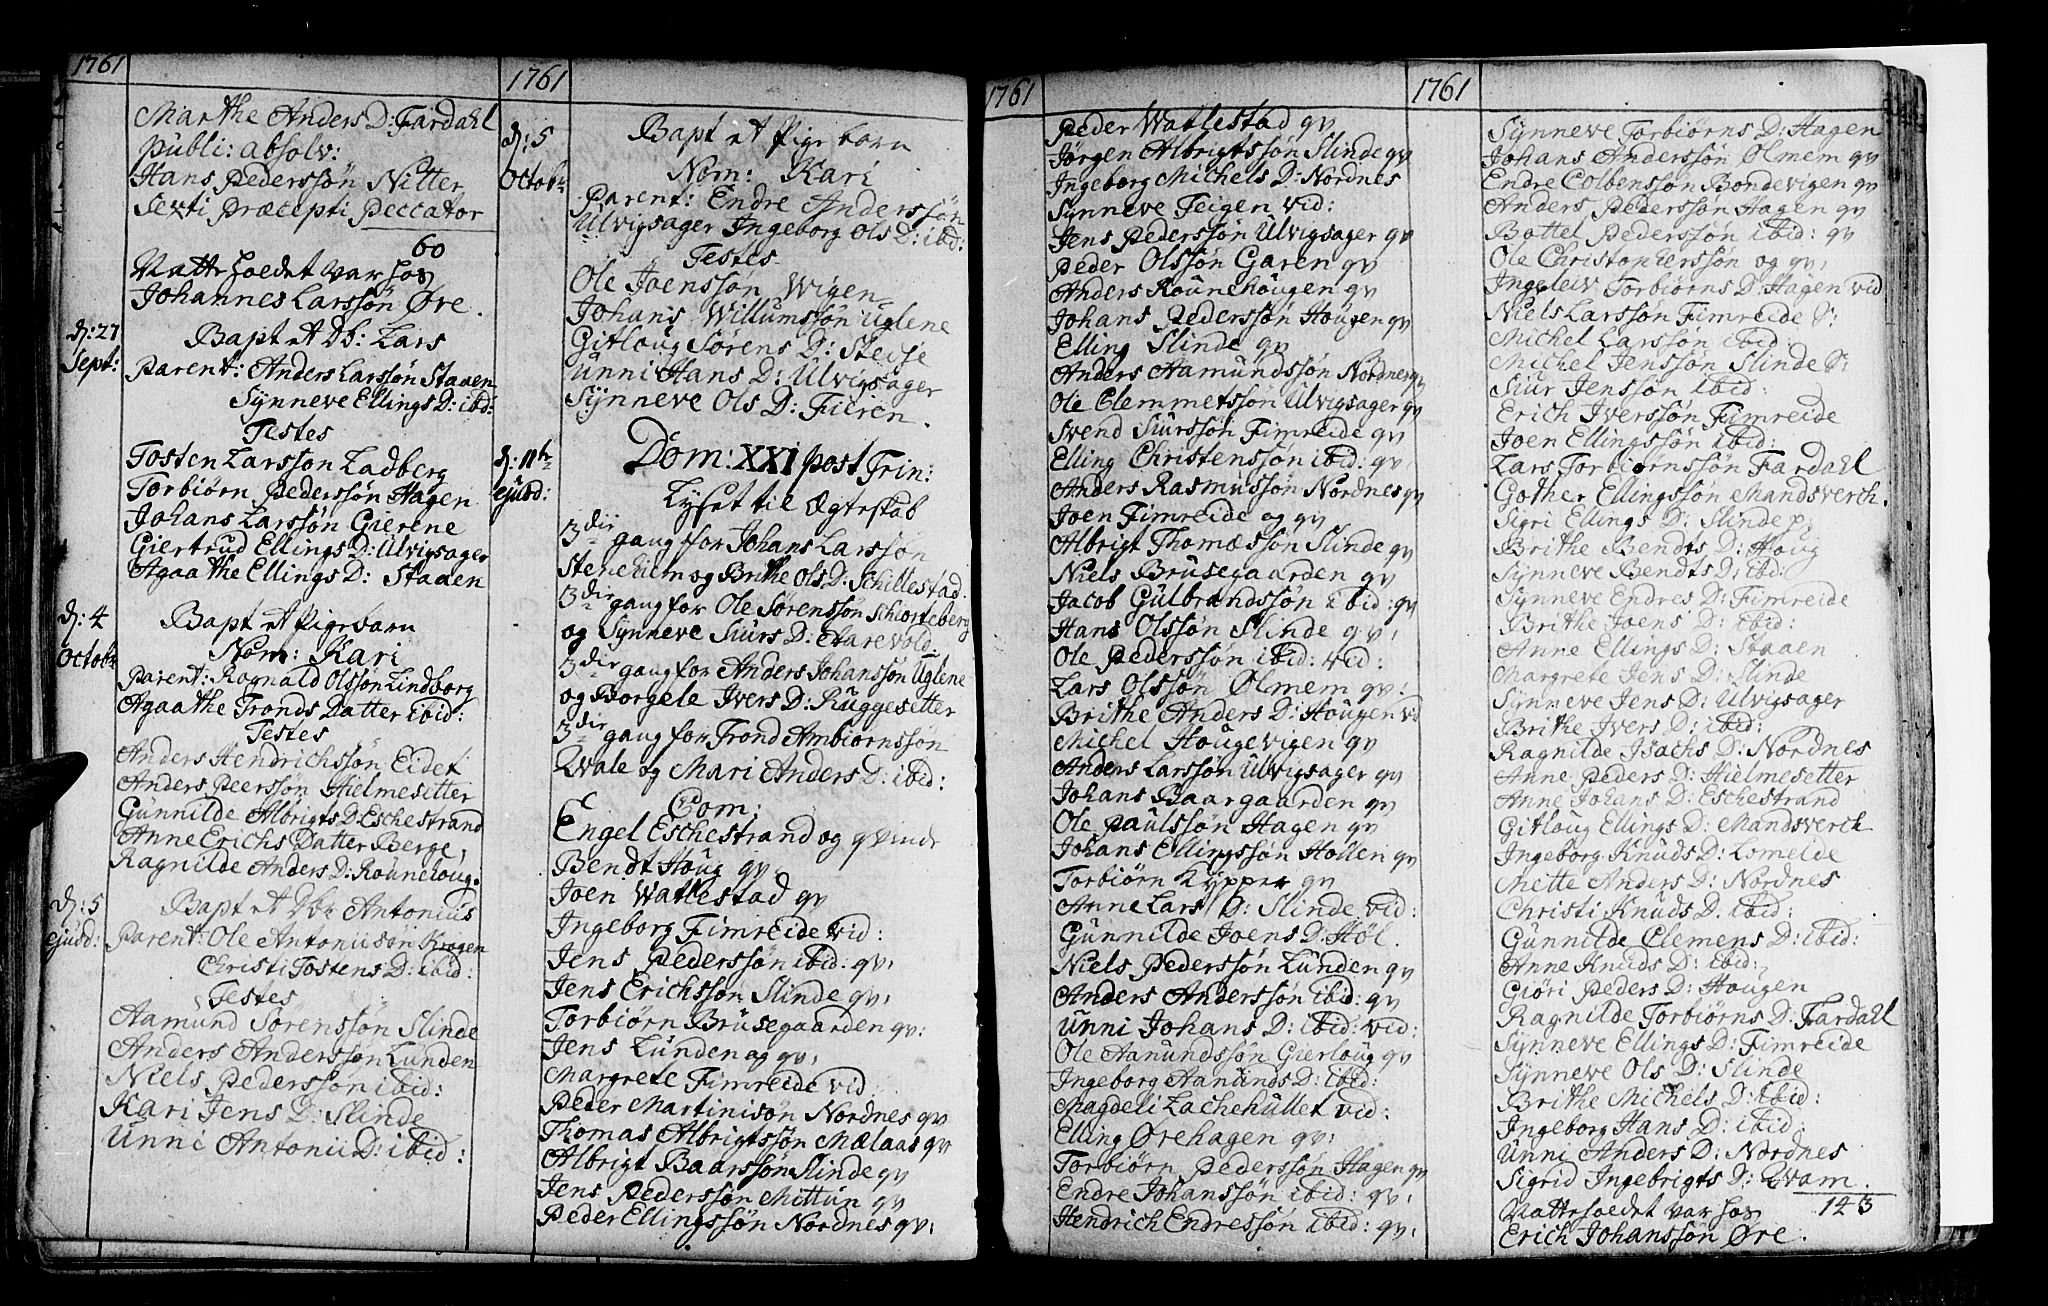 1761
Marthe Anders D: Fardahl
Publi: absolv:
Hans Pederssøn Nitter
Sexti Præcepti Peccator
60
Natteholdet var hos
Johannes Larssøn Øre.
d: 27 Sept:
Bapt et Db: Lars
Parent: Anders Larssøn Staaen
Synneve Ellings D: ibid:
Testes
Tosten Larsson Ladberg
Torbiørn Pederssøn Hagen
Johans Larssøn Gierene
Giertrud Ellings D: Ulvigsager
Agaathe Ellings D: Staaen
d: 4 Octobr
Bapt et Pigebarn
Nom: Kari
Parent: Ragnald Olsson Lindborg
Agaathe Tronds Datter ibid:
Testes
Anders Hendrichssøn Eidet
Anders Peerssøn Hielmesetter
Gunnilde Albrigts D: Eschestrand
Anne Erichs Datter Berge,
Ragnilde Anders D: Rounehoug.
d: 5 ejusd:
Bapt et Db: Antonius
Parent: Ole Antoniisøn Krogen
Christi Tostens D: ibid:
Testes
Aamund Sørenssøn Slinde
Anders Anderssøn Lunden
Niels Pederssøn ibid:
Kari Jens D: Slinde
Unni Antonii D: ibid:
1761
d: 5 Octobr
Bapt et Pige barn
Nom: Kari
Parent: Endre Anderssøn
Ulvigsager Ingeborg Ols D: ibid:
Testes
Ole Joenssøn Wigen
Johans Willumssøn Uglene
Gitloug Sørens D: Stedje
Unni Hans D: Ulvigsager
Synneve Ols D: Fieren.
d: 11te ejusd:
Dom: XXI post Trin:
Lyset til Ægteskab
3die gang for Johans Larssøn
Stenehiem og Brithe Ols D: Schillestad.
3die gang for Ole Sørenssøn Schiorteberg
og Synneve Siurs D: Charevold
3die gang for Anders Johanssøn Uglene
og Borgele Ivers D: Ruggesetter
3die gang for Trond Ambiornssøn
Qvale og Mari Anders D: ibid:
Com:
Engel Eschestrand og qvinde
Bendt Houg qv,
Joen Watlestad qv
Ingeborg Fimreide vid:
Jens Pederssøn ibid: qv,
Jens Erichssøn Slinde qv,
Torbiørn Brusegaarden qv:
Jens Lunden og qv,
Margrete Fimreide vid
Peder Martinisøn Nordnes qv
Thomas Albrigtssøn Mælaas qv
Albrigt Baarssøn Slinde qv
Jens Pederssøn Mittun qv
Peder Ellingssøn Nordnes qv,
1761
Peder Watlestad qv
Jørgen Albrigtssøn Slinde qv
Ingeborg Michels D: Nordnes
Synneve Feigen vid:
Jens Pederssøn Ulvigsager qv
Peder Olssøn Garen qv
Anders Rounehougen qv
Johans Pederssøn Hougen qv
Elling Slinde qv
Anders Aamundssøn Nordnes qv
Ole Clemmetssøn Ulvigsager qv
Svend Siurssøn Fimreide qv
Elling Christenssøn ibid: qv,
Anders Rasmussøn Nordnes qv
Joen Fimreide og qv
Albrigt Thomæssøn Slinde qv
Niels Brusegaarden qv
Jacob Gulbrandssøn ibid: qv
Hans Olssøn Slinde qv,
Ole Pederssøn ibid: vid:
Lars Olssøn Ølmem qv:
Brithe Anders D: Hougen vid
Michel Hougevigen qv
Anders Larssøn Ulvigsager qv
Johans Baargaarden qv
Ole Paulssøn Hagen qv
Johans Ellingssøn Hollen qv
Torbiørn Kypper qv
Anne Lars D: Slinde vid:
Gunnilde Joens D: Høl.
Niels Pederssøn Lunden qv
Anders Anderssøn ibid: qv
Unni Johans D: ibid: vid:
Ole Aamundssøn Gierloug qv
Ingeborg Aamunds D: ibid:
Magdeli Lachehullet vid:
Elling Ørehagen qv,
Torbiørn Pederssøn Hagen qv
Endre Johanssøn ibid: qv,
Hendrich Endressøn ibid: qv,
1761
Synneve Torbiørns D: Hagen
Johans Anderssøn Olmem qv
Endre Colbenssøn Bondevigen qv
Anders Pederssøn Hagen qv
Bottel Pederssøn ibid: qv
Ole Christopherssøn og qv,
Ingeleiv Torbiørns D: Hagen vid
Niels Larssøn Fimreide S:
Michel Larssøn ibid:
Michel Jenssøn Slinde S:
Siur Jenssøn ibid:
Erich Iverssøn Fimreide
Joen Ellingssøn ibid:
Lars Torbiørnssøn Fardahl
Gother Ellingssøn Mandsverch.
Sigri Ellings D: Slinde p:
Brithe Bendts D: Houg
Synneve Bendts D: ibid:
Synneve Endres D: Fimreide
Brithe Joens D: ibid:
Anne Ellings D: Staaen
Margrete Jens D: Slinde
Synneve Jens D: Ulvigsager
Brithe Ivers D: ibid:
Ragnilde Isachs D: Nordnes
Anne Peders D: Hielmesetter
Anne Johans D: Eschestrand
Gitloug Ellings D: Mandsverch
Ingeborg Knuds D: Lomelde
Mette Anders D: Nordnes
Christi Knuds D. ibid:
Gunnilde Clemens D: ibid:
Anne Knuds D: ibid:
Giøri Peders D: Hougen
Ragnilde Torbiørns D: Fardahl
Synneve Ellings D: Fimreide
Synneve Ols D: Slinde
Brithe Michels D: ibid:
Ingeborg Hans D: ibid:
Unni Anders D: Nordnes
Sigrid Ingebrigts D: Qvam.
143
Natteholdet var hos
Erich Johanssøn Øre.